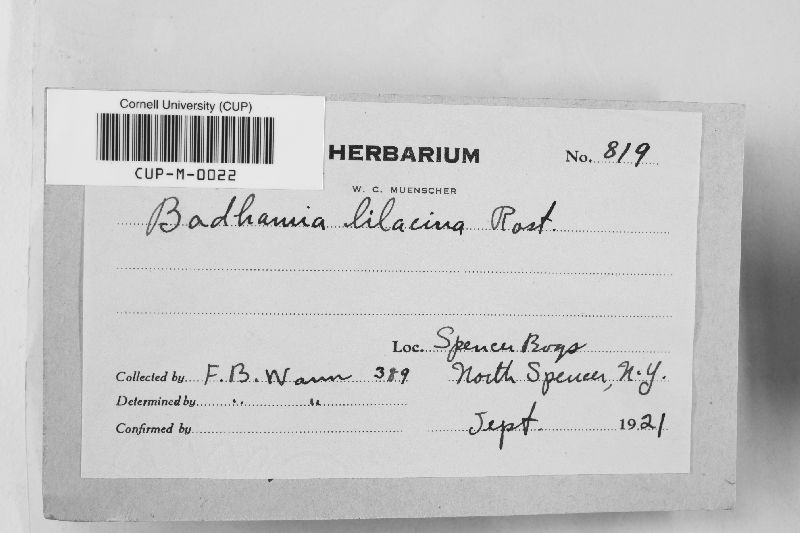 Cornell University (CUP)
CUP-M-0022
HERBARIUM No. 819
W. C. MUENSCHER
Badhamia lilacina Rost.
Loc. Spencer Bogs
Collected by F. B. Wann 389 North Spencer, N.Y.
Determined by " "
Confirmed by
Sept. 1921